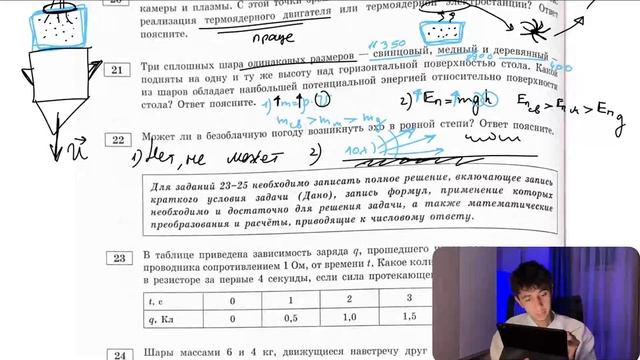 камеры и плазмы. С этой точки
реализация термоядерного двигателя или термоядерной электростанции? Ответ
поясните.
проще
11 350
8900
400
21 Три сплошных шара одинаковых размеров — свинцовый, медный и деревянный —
подняты на одну и ту же высоту над горизонтальной поверхностью стола. Какой
из шаров обладает наибольшей потенциальной энергией относительно поверхности
стола? Ответ поясните.
1) m = ρ · V
m св > m м > m д
2) Eп = mgh
Eп св > Eп м > Eп д
22 Может ли в безоблачную погоду возникнуть эхо в ровной степи? Ответ поясните.
1) Нет, не может
2)
Для заданий 23–25 необходимо записать полное решение, включающее запись
краткого условия задачи (Дано), запись формул, применение которых
необходимо и достаточно для решения задачи, а также математические
преобразования и расчёты, приводящие к числовому ответу.
23 В таблице приведена зависимость заряда q, прошедшего
проводника сопротивлением 1 Ом, от времени t. Какое
в резисторе за первые 4 секунды, если сила
t, с 0 1 2 3
q, Кл 0 0,5 1,0 1,5
24 Шары массами 6 и 4 кг, движущиеся навстречу друг
u